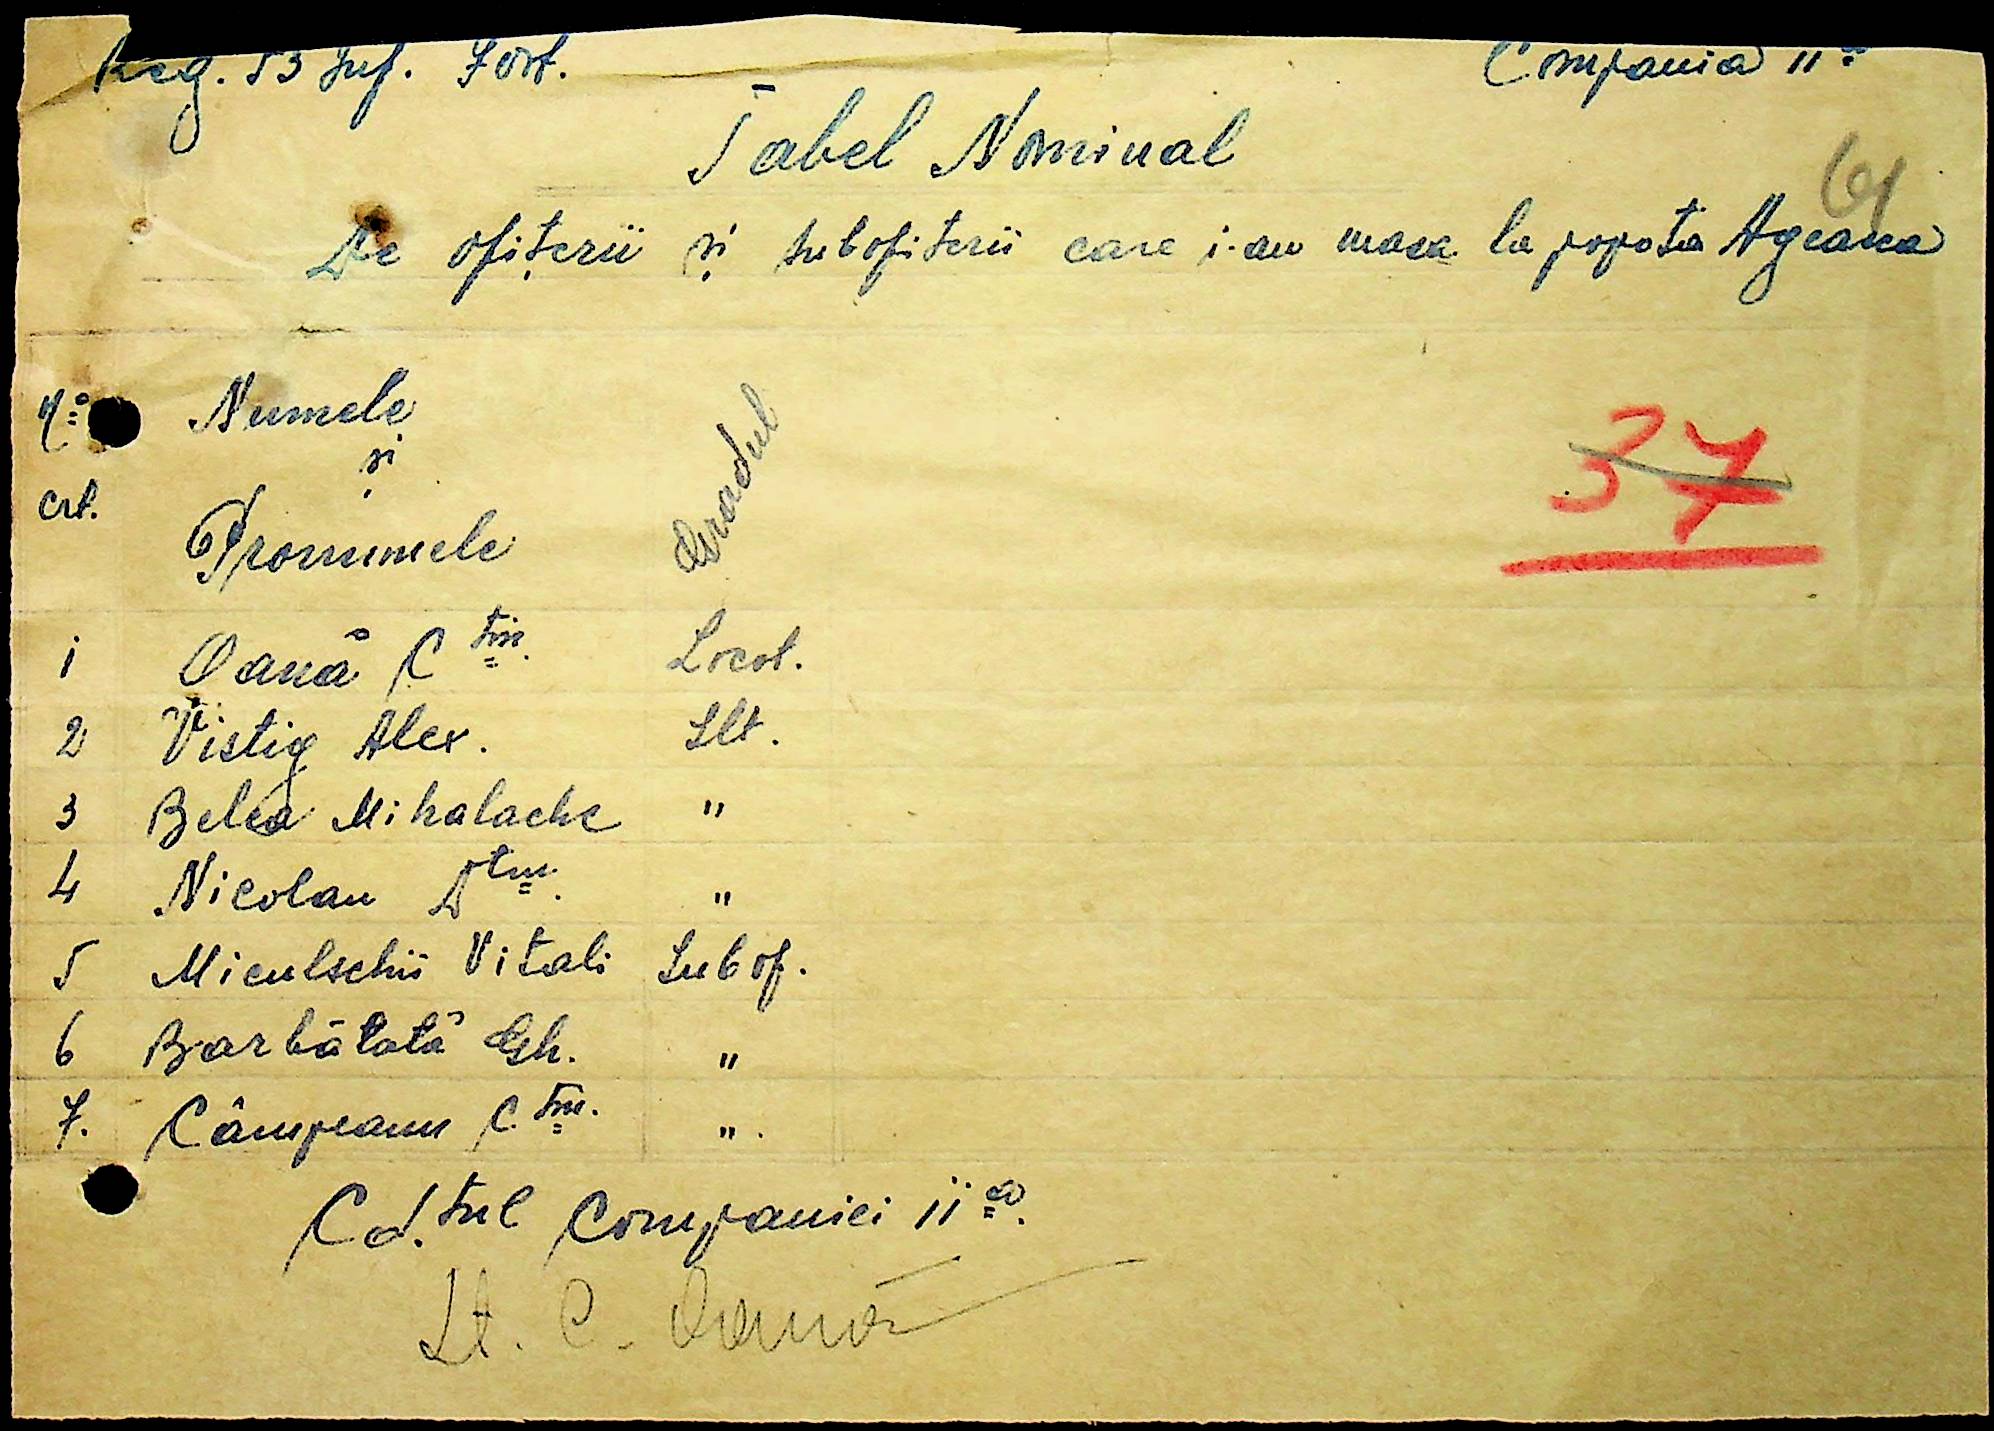 Reg. 53 Inf. Fort. Compania II a
Tabel Nominal
61
De ofițerii și subofiterii care i-au masa la popota Ageana
No
crt.
Numele
și
Pronumele
Gradul
37
1 Oană C tin. Locot.
2 Vistig Alex. Slt.
3 Belea Mihalache "
4 Nicolau D tru. "
5 Miculschii Vitali Subof.
6 Barbătată Gh. "
7. Câmpeanu C. tin. ".
Cd. tul Companiei II a.
Lt. C. Oană